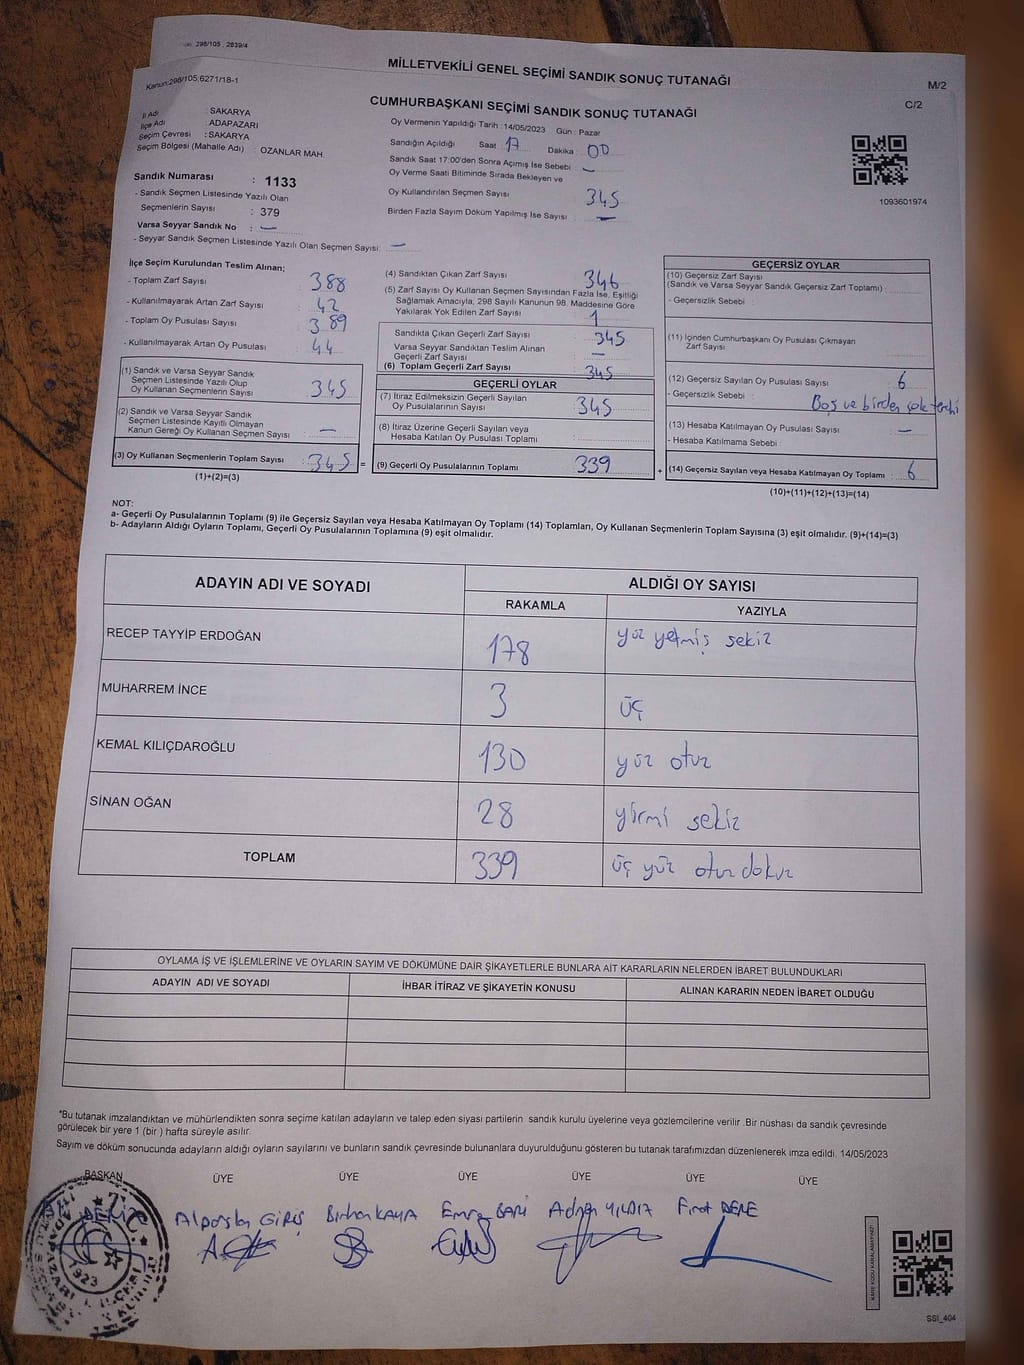 298/105 , 2839/4
MİLLETVEKİLİ GENEL SEÇİMİ SANDIK SONUÇ TUTANAĞI
M/2
Kanun:298/105;6271/18-1
CUMHURBAŞKANI SEÇİMİ SANDIK SONUÇ TUTANAĞI
C/2
İl Adı : SAKARYA
İlçe Adı : ADAPAZARI
Seçim Çevresi : SAKARYA
Seçim Bölgesi (Mahalle Adı) : OZANLAR MAH.
Sandık Numarası : 1133
- Sandık Seçmen Listesinde Yazılı Olan
Seçmenlerin Sayısı : 379
Varsa Seyyar Sandık No : —
- Seyyar Sandık Seçmen Listesinde Yazılı Olan Seçmen Sayısı: —
Oy Vermenin Yapıldığı Tarih : 14/05/2023 Gün : Pazar
Sandığın Açıldığı Saat 17 Dakika : 00
Sandık Saat 17:00'den Sonra Açımış İse Sebebi : —
Oy Verme Saati Bitiminde Sırada Bekleyen ve
Oy Kullandırılan Seçmen Sayısı 345
Birden Fazla Sayım Döküm Yapılmış İse Sayısı : —
1093601974
İlçe Seçim Kurulundan Teslim Alınan;
- Toplam Zarf Sayısı : 388
- Kullanılmayarak Artan Zarf Sayısı : 42
- Toplam Oy Pusulası Sayısı : 389
- Kullanılmayarak Artan Oy Pusulası : 44
(1) Sandık ve Varsa Seyyar Sandık
Seçmen Listesinde Yazılı Olup
Oy Kullanan Seçmenlerin Sayısı : 345
(2) Sandık ve Varsa Seyyar Sandık
Seçmen Listesinde Kayıtlı Olmayan
Kanun Gereği Oy Kullanan Seçmen Sayısı : —
(3) Oy Kullanan Seçmenlerin Toplam Sayısı : 345 =
(1)+(2)=(3)
(4) Sandıktan Çıkan Zarf Sayısı : 346
(5) Zarf Sayısı Oy Kullanan Seçmen Sayısından Fazla İse, Eşitliği
Sağlamak Amacıyla, 298 Sayılı Kanunun 98. Maddesine Göre
Yakılarak Yok Edilen Zarf Sayısı : 1
Sandıkta Çıkan Geçerli Zarf Sayısı : 345
Varsa Seyyar Sandıktan Teslim Alınan
Geçerli Zarf Sayısı : —
(6) Toplam Geçerli Zarf Sayısı : 345
GEÇERLİ OYLAR
(7) İtiraz Edilmeksizin Geçerli Sayılan
Oy Pusulalarının Sayısı : 345
(8) İtiraz Üzerine Geçerli Sayılan veya
Hesaba Katılan Oy Pusulası Toplamı :
(9) Geçerli Oy Pusulalarının Toplamı : 339 +
GEÇERSİZ OYLAR
(10) Geçersiz Zarf Sayısı
(Sandık ve Varsa Seyyar Sandık Geçersiz Zarf Toplamı) :
- Geçersizlik Sebebi :
(11) İçinden Cumhurbaşkanı Oy Pusulası Çıkmayan
Zarf Sayısı
(12) Geçersiz Sayılan Oy Pusulası Sayısı : 6
- Geçersizlik Sebebi : Boş ve birden çok tercih
(13) Hesaba Katılmayan Oy Pusulası Sayısı : —
- Hesaba Katılmama Sebebi :
(14) Geçersiz Sayılan veya Hesaba Katılmayan Oy Toplamı : 6
(10)+(11)+(12)+(13)=(14)
NOT:
a- Geçerli Oy Pusulalarının Toplamı (9) ile Geçersiz Sayılan veya Hesaba Katılmayan Oy Toplamı (14) Toplamları, Oy Kullanan Seçmenlerin Toplam Sayısına (3) eşit olmalıdır. (9)+(14)=(3)
b- Adayların Aldığı Oyların Toplamı, Geçerli Oy Pusulalarının Toplamına (9) eşit olmalıdır.
ADAYIN ADI VE SOYADI
ALDIĞI OY SAYISI
RAKAMLA YAZIYLA
RECEP TAYYİP ERDOĞAN 178 yüz yetmiş sekiz
MUHARREM İNCE 3 üç
KEMAL KILIÇDAROĞLU 130 yüz otuz
SİNAN OĞAN 28 yirmi sekiz
TOPLAM 339 üç yüz otuz dokuz
OYLAMA İŞ VE İŞLEMLERİNE VE OYLARIN SAYIM VE DÖKÜMÜNE DAİR ŞİKAYETLERLE BUNLARA AİT KARARLARIN NELERDEN İBARET BULUNDUKLARI
ADAYIN ADI VE SOYADI İHBAR İTİRAZ VE ŞİKAYETİN KONUSU ALINAN KARARIN NEDEN İBARET OLDUĞU
*Bu tutanak imzalandıktan ve mühürlendikten sonra seçime katılan adayların ve talep eden siyasi partilerin sandık kurulu üyelerine veya gözlemcilerine verilir .Bir nüshası da sandık çevresinde
görülecek bir yere 1 (bir ) hafta süreyle asılır.
Sayım ve döküm sonucunda adayların aldığı oyların sayılarını ve bunların sandık çevresinde bulunanlara duyurulduğunu gösteren bu tutanak tarafımızdan düzenlenerek imza edildi. 14/05/2023
BAŞKAN ÜYE ÜYE ÜYE ÜYE ÜYE ÜYE
Alparslan GİRİŞ Birhan KAYA Emre BARİ Adnan YILDIZ Fırat DERE
T.C.
1923
SSİ_404